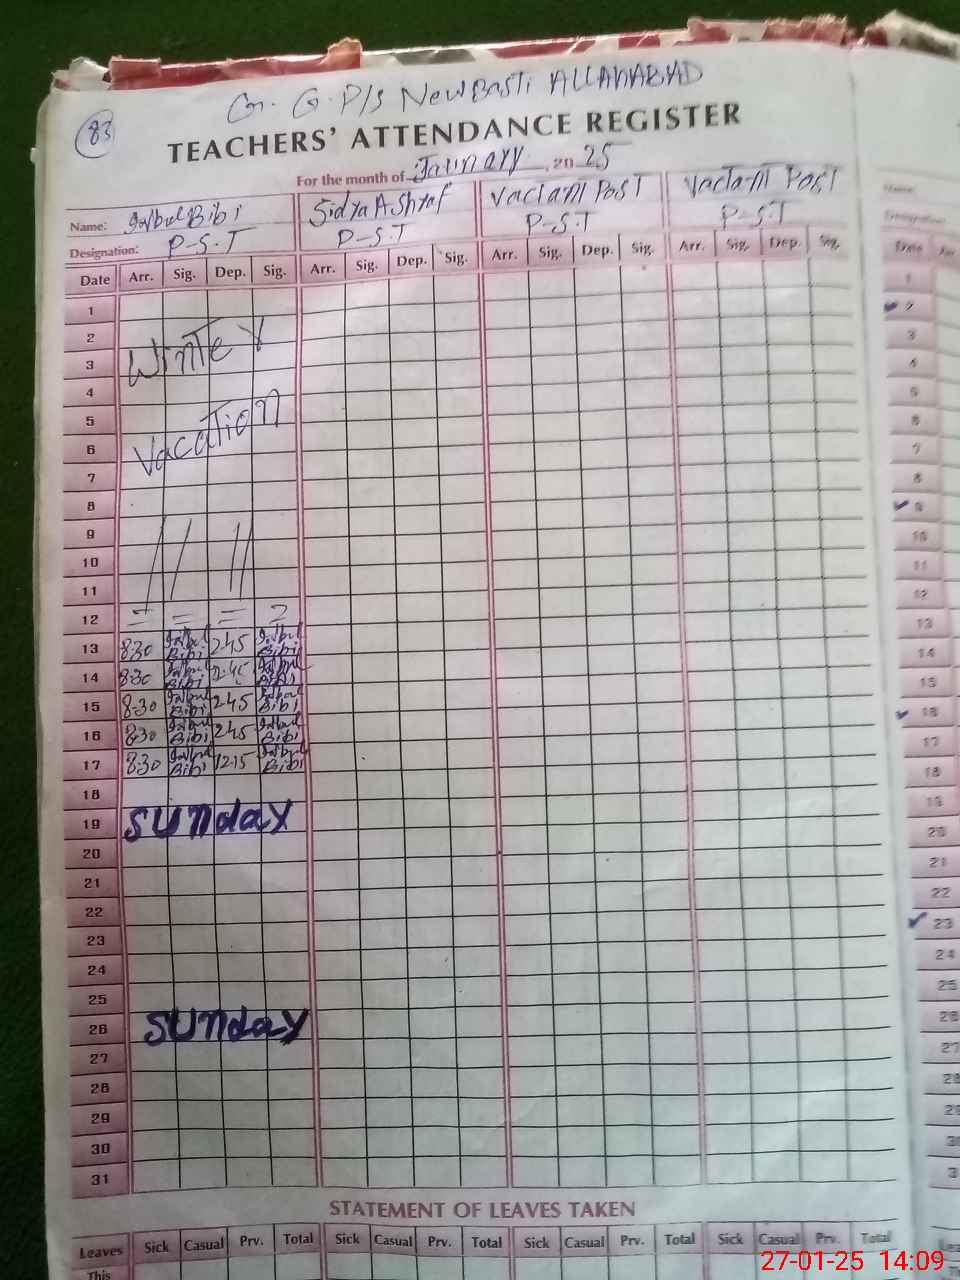 83
G. G. P/S New Basti ALLAHABAD
TEACHERS' ATTENDANCE REGISTER
For the month of January, 20 25
Name: Iqbal Bibi Sidra Ashraf Vacant Post Vacant Post
Designation: P-S.T P-S.T P-S.T P-S.T
Date Arr. Sig. Dep. Sig. Arr. Sig. Dep. Sig. Arr. Sig. Dep. Sig. Arr. Sig. Dep. Sig.
1
2 Winter
3
4
5 Vacation
6
7
8
9
10
11
12
13 8:30 Iqbal Bibi 2:45 Iqbal Bibi
14 8:30 Iqbal Bibi 2:45 Iqbal Bibi
15 8:30 Iqbal Bibi 2:45 Iqbal Bibi
16 8:30 Iqbal Bibi 2:45 Iqbal Bibi
17 8:30 Iqbal Bibi 12:15 Iqbal Bibi
18
19 Sunday
20
21
22
23
24
25
26 Sunday
27
28
29
30
31
STATEMENT OF LEAVES TAKEN
Leaves Sick Casual Prv. Total Sick Casual Prv. Total Sick Casual Prv. Total Sick Casual Prv. Total
This
27-01-25 14:09
Name:
Designation:
Date Arr
1
2
3
4
5
6
7
8
9
10
11
12
13
14
15
16
17
18
19
20
21
22
23
24
25
26
27